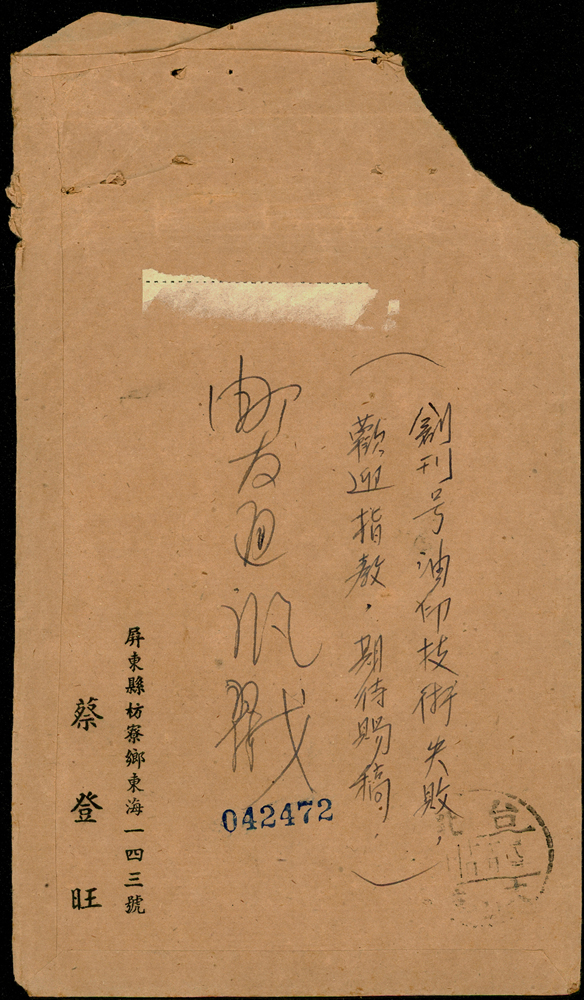 創刊号油印技術失敗，
（歡迎指教，期待賜稿，）
郵友通訊戳
042472
屏東縣枋寮鄉東海一四三號
蔡登旺